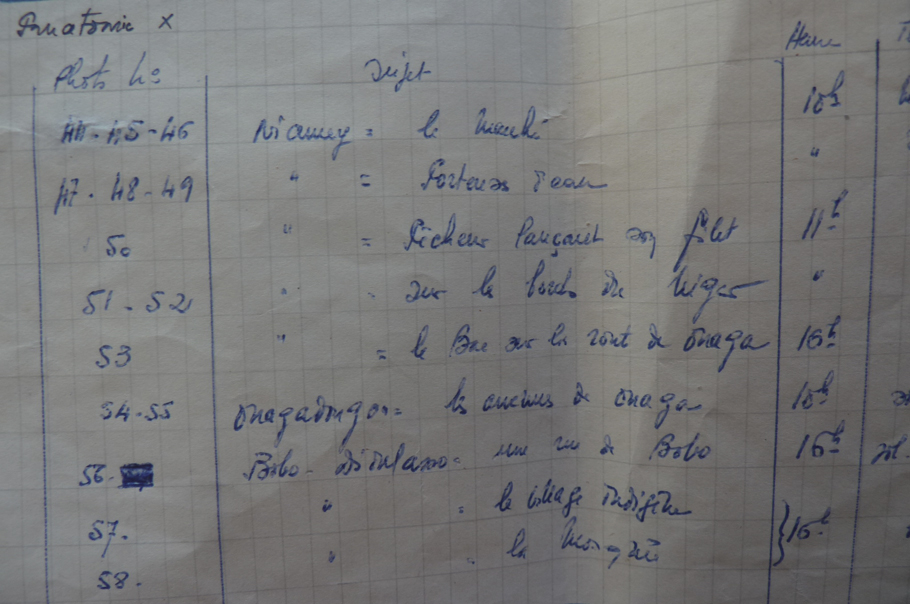 Panatomic X
Photo No Sujet Heure
44-45-46 Niamey = le Marché 10h
47-48-49 " = Porteuses d'eau "
50 " = Pêcheur lançant son filet 11h
51-52 " = sur les bords du Niger "
53 " = le Bac sur la route de Ouaga 16h
54-55 Ouagadougou = les environs de Ouaga 10h
56- Bobo-Dioulasso = une vue de Bobo 16h
57- " = le village indigène } 16h
58- " = la Mosquée